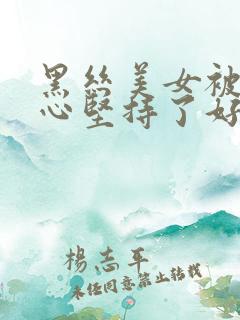 黑丝美女被
心坚持了好
杨志平
未经同意禁止转载